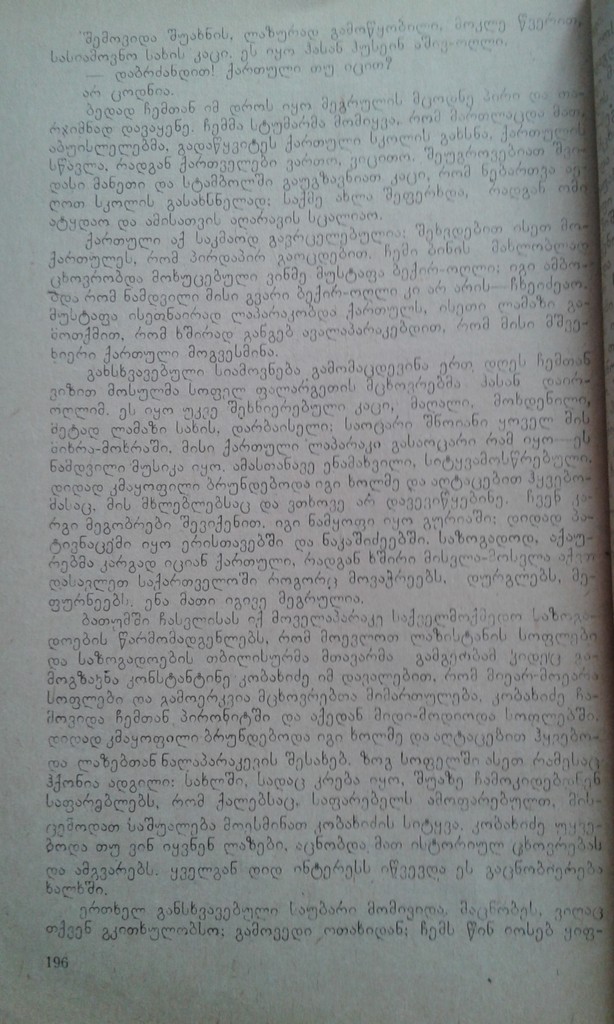 შემოვიდა შუახნის, ლაზურად გამოწყობილი, მოკლე წვერით,
სასიამოვნო სახის კაცი. ეს იყო ჰასან ჰუსეინ
— დაბრძანდით! ქართული თუ იცით?
არ ცოდნია.
ბედად ჩემთან იმ დროს იყო მეგრულის მცოდნე პირი და თა-
რჯიმნად დავაყენე. ჩემმა სტუმარმა მომიყვა, რომ მართლაცდა მათ,
აბუისლელებმა, გადაწყვიტეს ქართული სკოლის გახსნა, ქართულის
სწავლა, რადგან ქართველები ვართო, ვიცითო. შეუგროვებიათ შვი-
დასი მანეთი და სტამბოლში გაუგზავნიათ კაცი, რომ ნებართვა აე-
ღოთ სკოლის გასახსნელად; საქმე ახლა შეფერხდა, რადგან ომი
ატყდაო და ამისათვის აღარავის სცალიაო.
ქართული აქ საკმაოდ გავრცელებულია; შეხვდებით ისეთ მო-
ქართულეს, რომ პირდაპირ გაოცდებით. ჩემი ბინის მახლობლად
ცხოვრობდა მოხუცებული ვინმე მუსტაფა ბექირ-ოღლი; იგი ამბო-
ბდა რომ ნამდვილი მისი გვარი ბექირ-ოღლი კი არ არის—ჩხეიძეაო.
მუსტაფა ისეთნაირად ლაპარაკობდა ქართულს, ისეთი ლამაზი გა-
მოთქმით, რომ ხშირად განგებ ავალაპარაკებდით, რომ მისი მშვე-
ნიერი ქართული მოგვესმინა.
განსხვავებული სიამოვნება გამომაცდევინა ერთ დღეს ჩემთან
ვიზით მოსულმა სოფელ ფალარგეთის მცხოვრებმა ჰასან დაირ-
ოღლიმ. ეს იყო უკვე შეხნიერებული კაცი, მაღალი, მოხდენილი,
მეტად ლამაზი სახის, დარბაისელი; საოცარი შნოიანი ყოველ მის
მიხრა-მოხრაში. მისი ქართული ლაპარაკი გასაოცარი რამ იყო—ეს
ნამდვილი მუსიკა იყო. ამასთანავე ენამახვილი, სიტყვამოსწრებული.
დიდად კმაყოფილი ბრუნდებოდა იგი ხოლმე და აღტაცებით ჰყვებო-
მასაც, მის მხლებლებსაც და ვთხოვე არ დავევიწყებინე. ჩვენ კა-
რგი მეგობრები შევიქენით. იგი ნამყოფი იყო გურიაში; დიდად პა-
ტივნაცემი იყო ერისთავებში და ნაკაშიძეებში. საზოგადოდ, აქაუ-
რებმა კარგად იციან ქართული, რადგან ხშირი მისვლა-მოსვლა აქვთ
დასავლეთ საქართველოში როგორც მოვაჭრეებს, დურგლებს, მე-
ფურნეებს. ენა მათი იგივე მეგრულია.
ბათუმში ჩასვლისას იქ მოველაპარაკე საქველმოქმედო საზოგა-
დოების წარმომადგენლებს, რომ მოევლოთ ლაზისტანის სოფლები
და საზოგადოების თბილისურმა მთავარმა გამგეობამ კიდეც გა-
მოგზავნა კონსტანტინე კობახიძე იმ დავალებით, რომ მიევარ-მოევარა
სოფლები და გამოერკვია მცხოვრებთა მიმართულება. კობახიძე ჩა-
მოვიდა ჩემთან პირონიტში და აქედან მიდი-მოდიოდა სოფლებში.
დიდად კმაყოფილი ბრუნდებოდა იგი ხოლმე და აღტაცებით ჰყვებო-
და ლაზებთან ნალაპარაკევის შესახებ. ზოგ სოფელში ასეთ რამესაც
ჰქონია ადგილი: სახლში, სადაც კრება იყო, შუაზე ჩამოკიდებინენ
საფარებლებს, რომ ქალებსაც, საფარებელს ამოფარებულთ, მის-
ცემოდათ საშუალება მოესმინათ კობახიძის სიტყვა. კობახიძე უყვე-
ბოდა თუ ვინ იყვნენ ლაზები, აცნობდა მათ ისტორიულ ცხოვრებას
და ამგვარებს. ყველგან დიდ ინტერესს იწვევდა ეს გაცნობიერება
ხალხში.
ერთხელ განსხვავებული საუბარი მომივიდა. მაცნობეს, ვიღაც
თქვენ გკითხულობსო; გამოვედი ოთახიდან; ჩემს წინ იოსებ ყიფ-
196